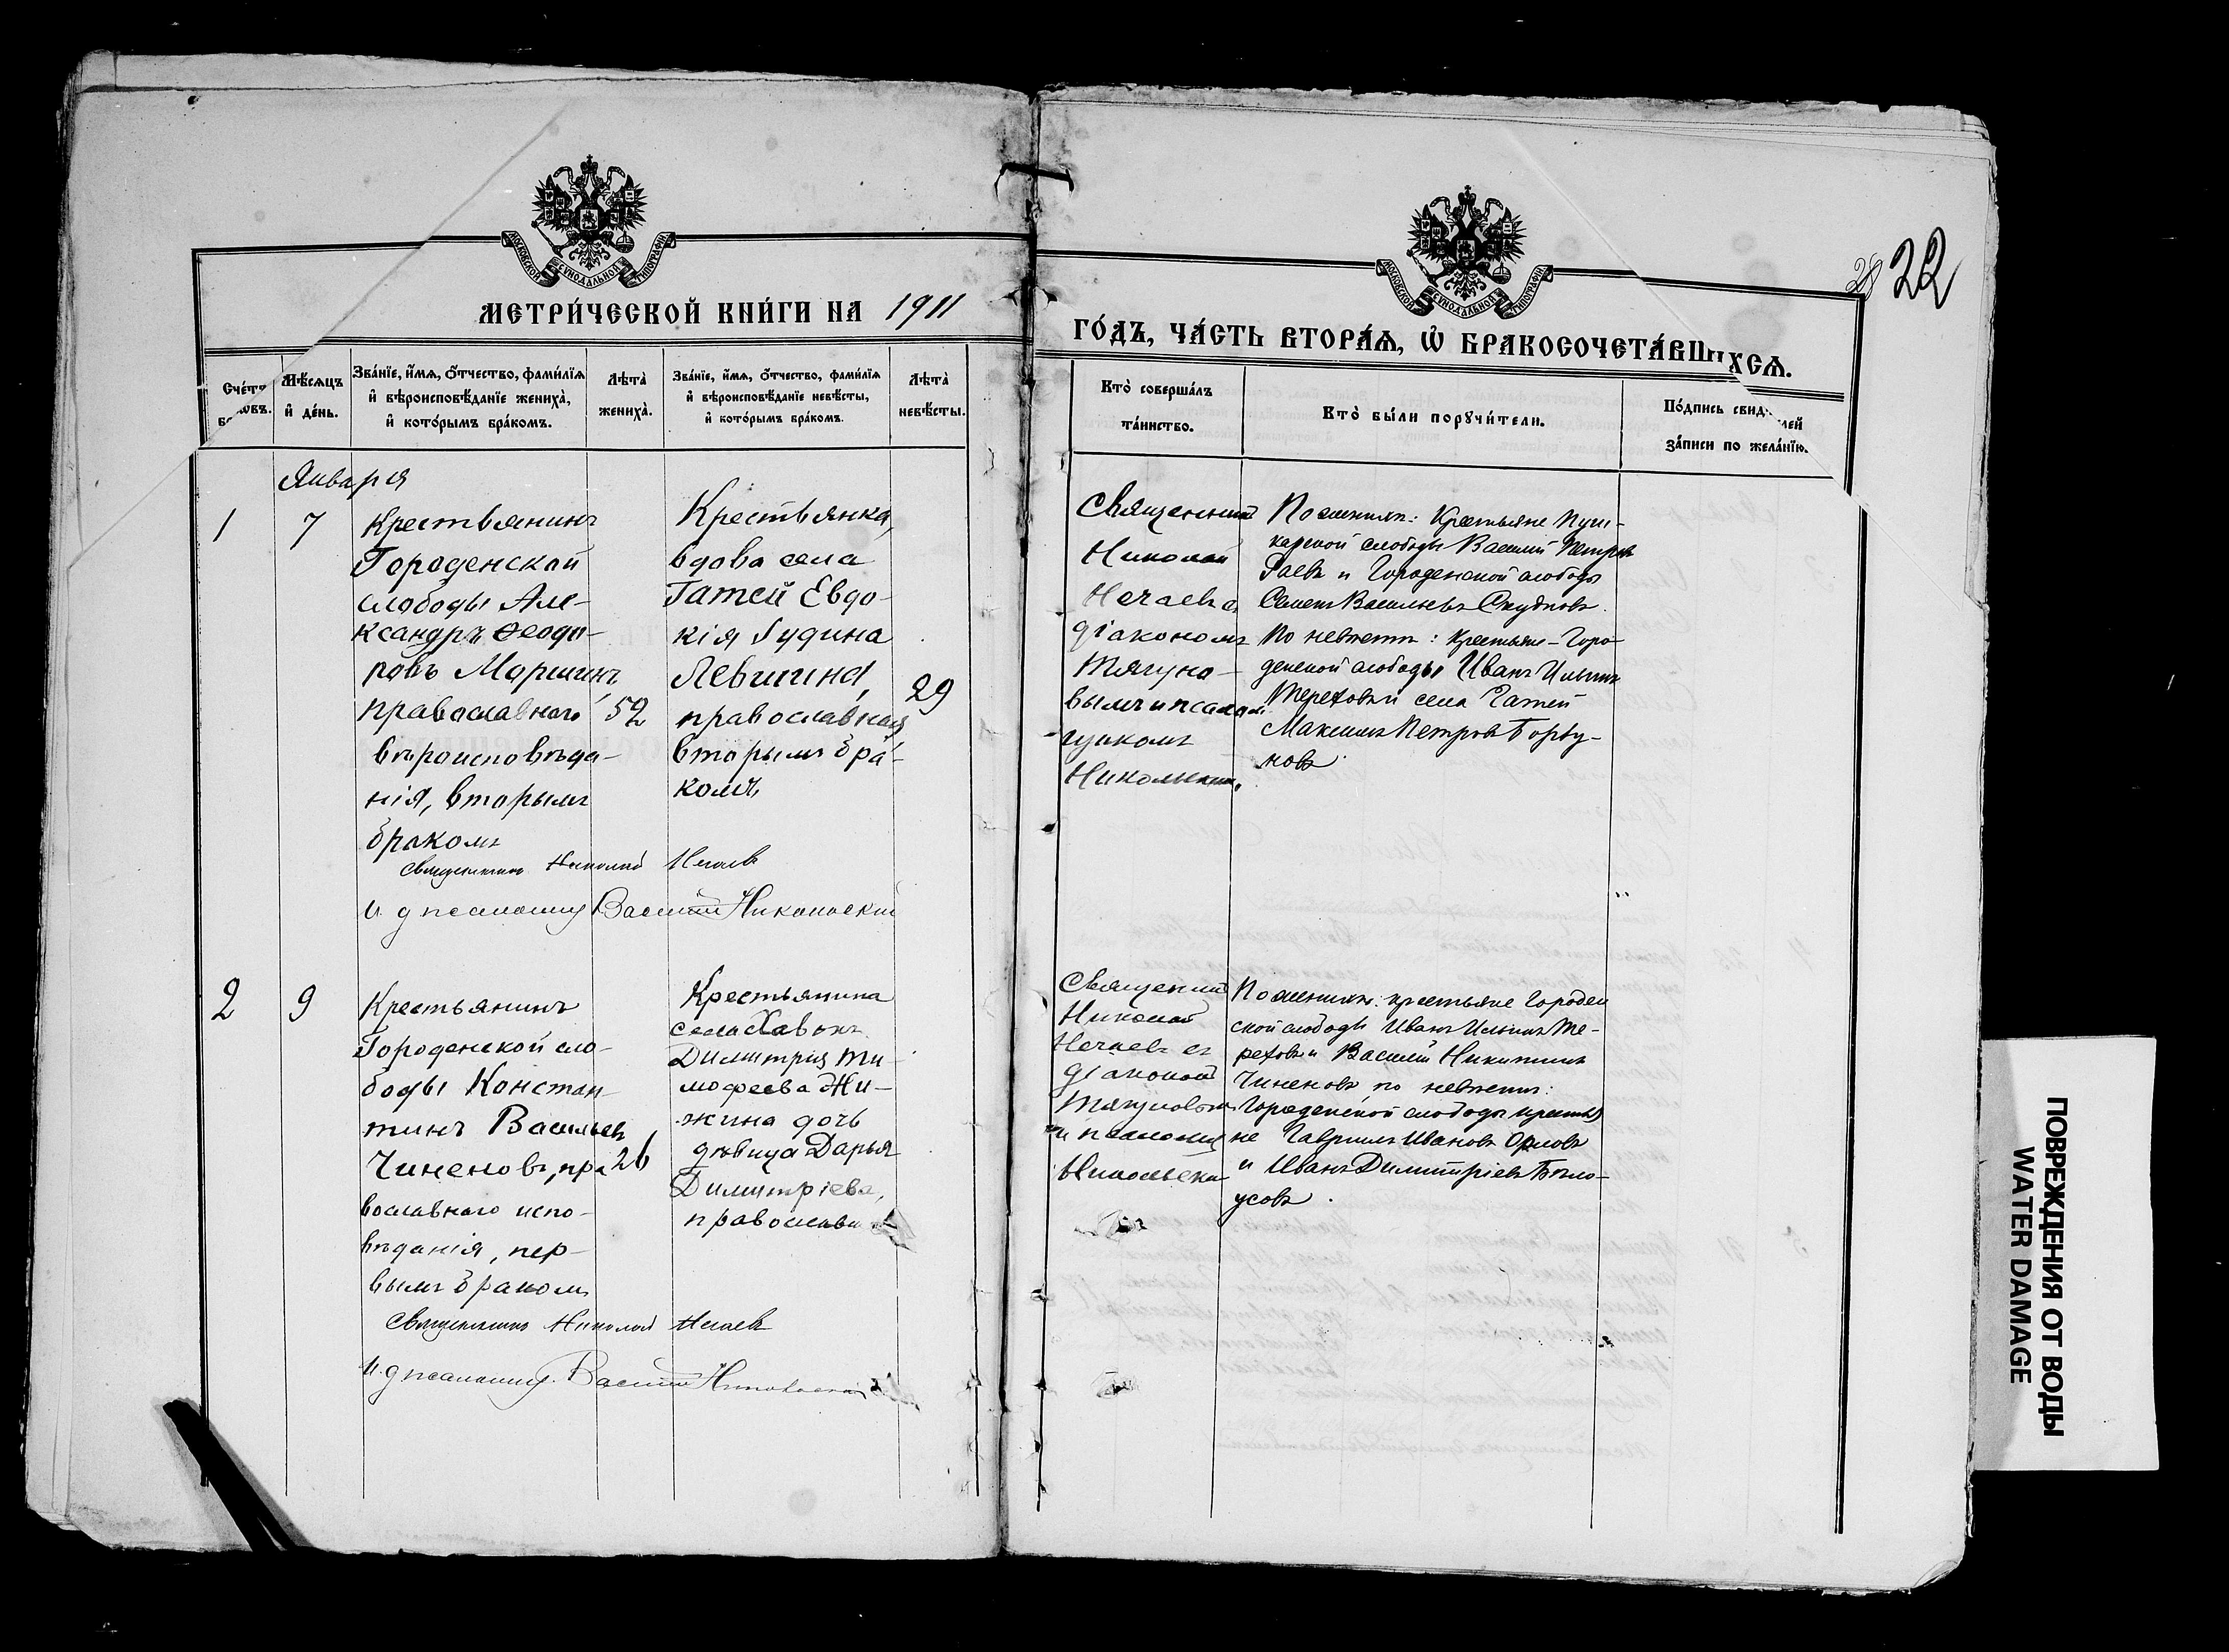 МОСКОВСКОЙ СѴНОДАЛЬНОЙ ТИПОГРАФІИ
МЕТРИ́ЧЕСКОЙ КНИ́ГИ НА 1911
Сче́тъ
Мѣ́сяцъ
и҆ де́нь.
Зва́нїе, и҆́мя, ѻ҆́тчество, фами́лїя
и҆ вѣроисповѣ́данїе жениха̀,
и҆ кото́рымъ бра́комъ.
Лѣта̀
жениха̀.
Зва́нїе, и҆́мя, ѻ҆́тчество, фами́лїя
и҆ вѣроисповѣ́данїе невѣ́сты,
и҆ кото́рымъ бра́комъ.
Лѣта̀
невѣ́сты.
Января
1
7
Крестьянинъ
Городенской
слободы Але-
ксандръ Ѳеодо-
ровъ Моршинъ
православнаго
вѣроисповѣда-
нія, вторымъ
бракомъ
52
Крестьянка,
вдова села
Гатей Евдо-
кія Гудина
Левшина,
православная,
вторымъ бра-
комъ
29
Священникъ Николай Нечаевъ
И. д псаломщ Василій Никольскій
2
9
Крестьянинъ
Городенской сло-
боды Констан-
тинъ Васильевъ
Чиненовъ, пра
вославнаго испо-
вѣданія, пер-
вымъ бракомъ
26
Крестьянина
села Хавокъ
Димитрія Ти-
мофеева Жи-
жина дочь
дѣвица Дарья
Димитріева,
православн
Священникъ Николай Нечаевъ
И. д псаломщ. Василій Никольскій
МОСКОВСКОЙ СѴНОДАЛЬНОЙ ТИПОГРАФІИ
28 22
ГО́ДЪ, ЧА́СТЬ ВТОРА́Ѧ, Ѡ҆ БРАКОСОЧЕТА́ВШИХСѦ.
Кто̀ соверша́лъ
та́инство.
Кто̀ бы́ли порꙋчи́тели.
По́дпись свид лей
за́писи по жела́нїю.
Священникъ
Николай
Нечаевъ съ
діакономъ
Тягуно-
вымъ и псалом
щикомъ
Никольскимъ.
По женихѣ: Крестьяне Пуш-
карской слободы Василій Петровъ
Гаевъ и Городенской слободы
Семенъ Васильевъ Скудновъ.
По невѣстѣ: крестьяне Горо-
денской слободы Иванъ Ильинъ
Тереховъ и села Гатей
Максимъ Петровъ Горбу-
новъ.
Священникъ
Николай
Нечаевъ съ
діакономъ
Тягуновымъ
и псаломщ
Никольски
По женихѣ: крестьяне Городен
ской слободы Иванъ Ильинъ Те-
реховъ и Василій Никитинъ
Чиненовъ по невѣстѣ:
Городенской слободы крестья
не Гавриилъ Ивановъ Орловъ
и Иванъ Димитріевъ Бѣло-
усовъ.
ПОВРЕЖДЕНИЯ ОТ ВОДЫ
WATER DAMAGE